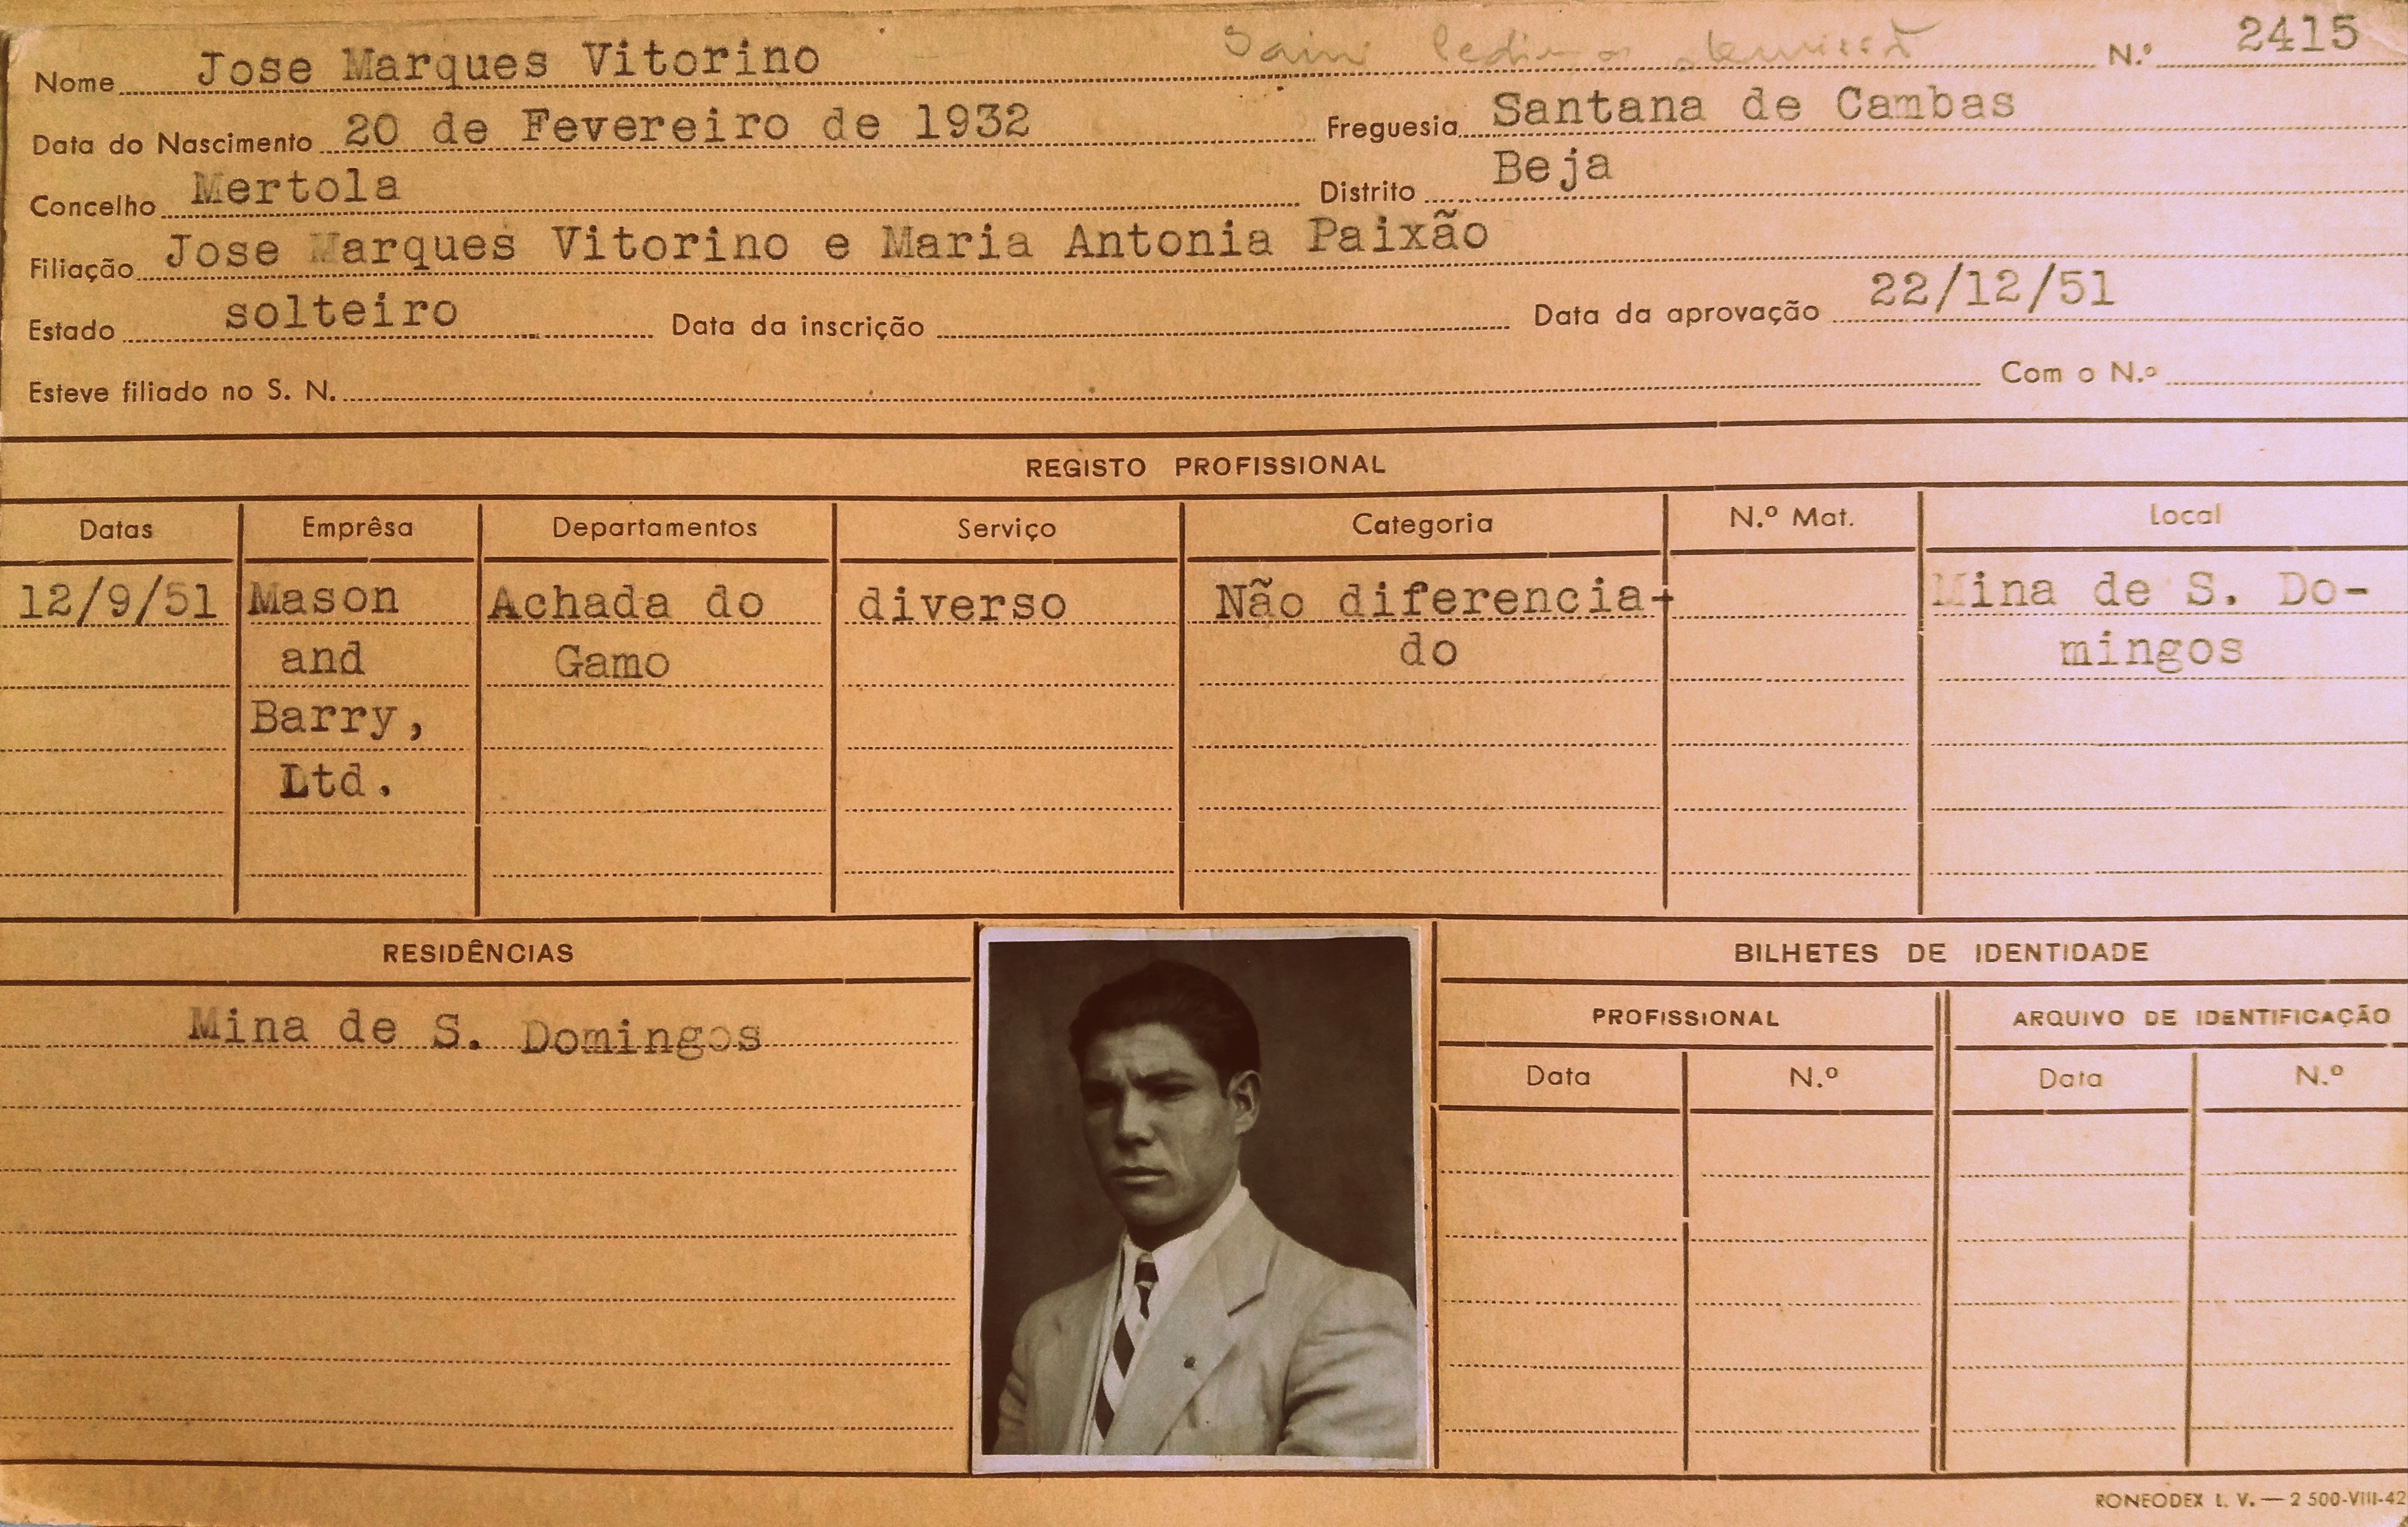 Nome Jose Marques Vitorino N.º 2415
Data do Nascimento 20 de Fevereiro de 1932 Freguesia Santana de Cambas
Concelho Mertola Distrito Beja
Filiação Jose Marques Vitorino e Maria Antonia Paixão
Estado solteiro Data da inscrição Data da aprovação 22/12/51
Esteve filiado no S. N. Com o N.º
REGISTO PROFISSIONAL
Datas Emprêsa Departamentos Serviço Categoria N.º Mat. Local
12/9/51 Mason Achada do diverso Não diferencia- Mina de S. Do-
and Gamo do mingos
Barry,
Ltd.
RESIDÊNCIAS BILHETES DE IDENTIDADE
PROFISSIONAL ARQUIVO DE IDENTIFICAÇÃO
Mina de S. Domingos
Data N.º Data N.º
RONEODEX L. V. — 2 500-VIII-42